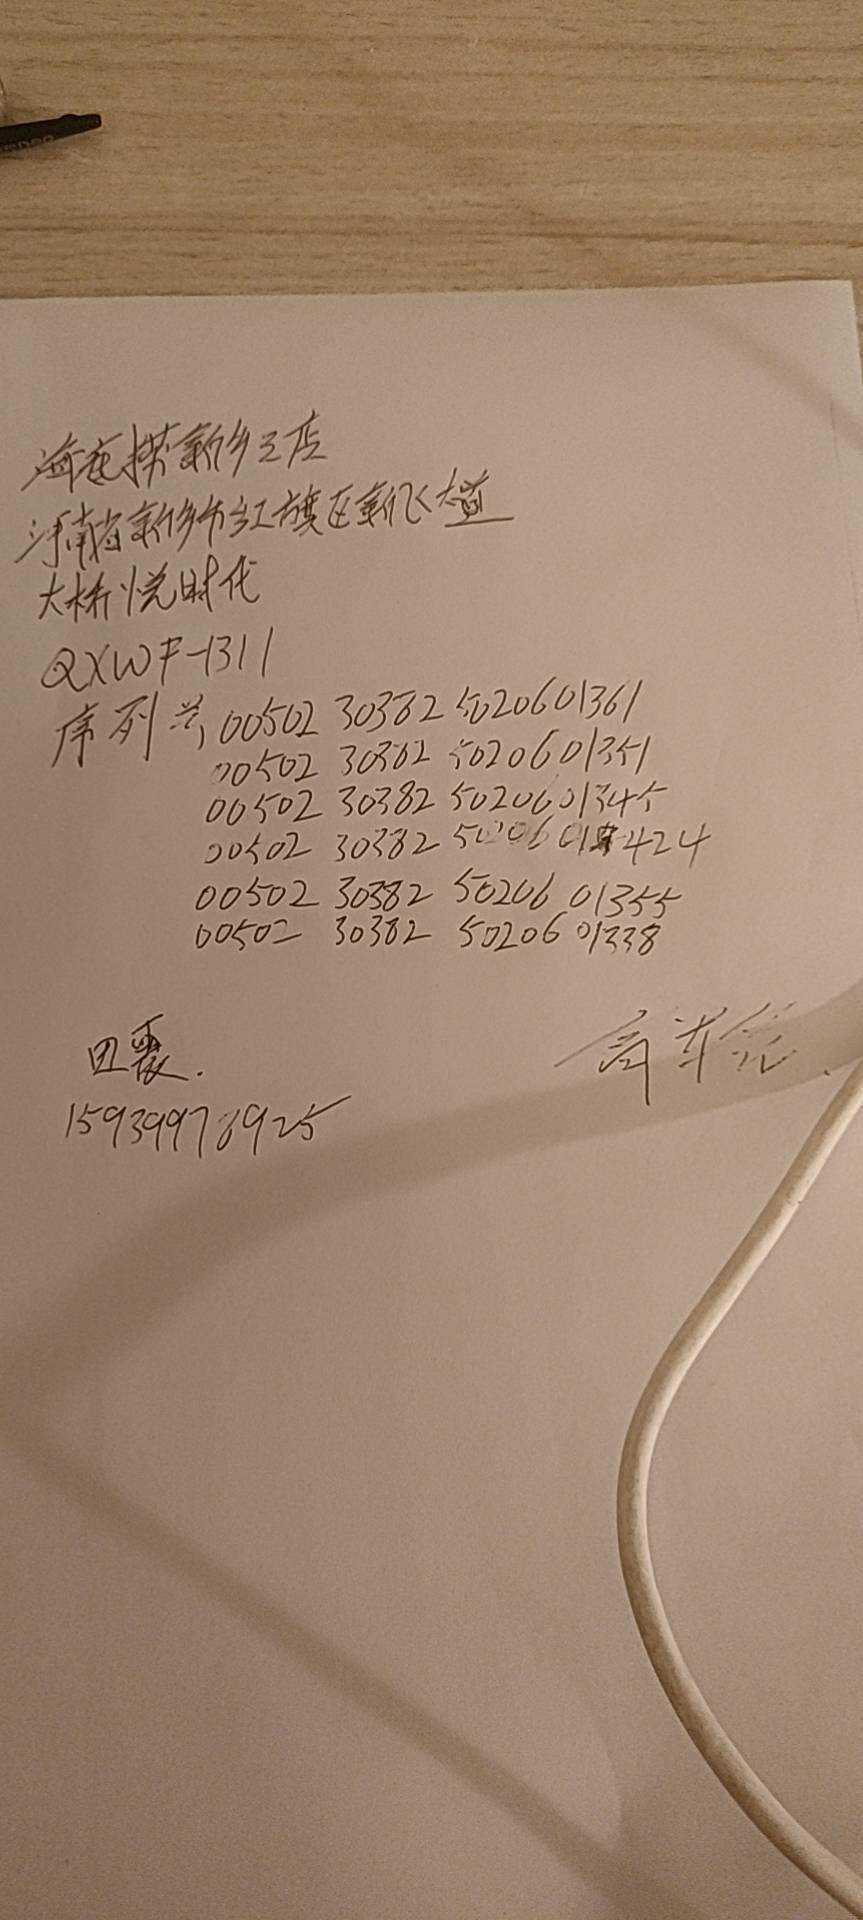 海底捞新乡三店
河南省新乡市红旗区新飞大道
大桥悦时代
QXWF-1311
序列号, 00502 30382 5020601361
00502 30382 5020601351
00502 30382 5020601345
00502 30382 5020601424
00502 30382 50206 01355
00502 30382 50206 01338
田震.
15939976925